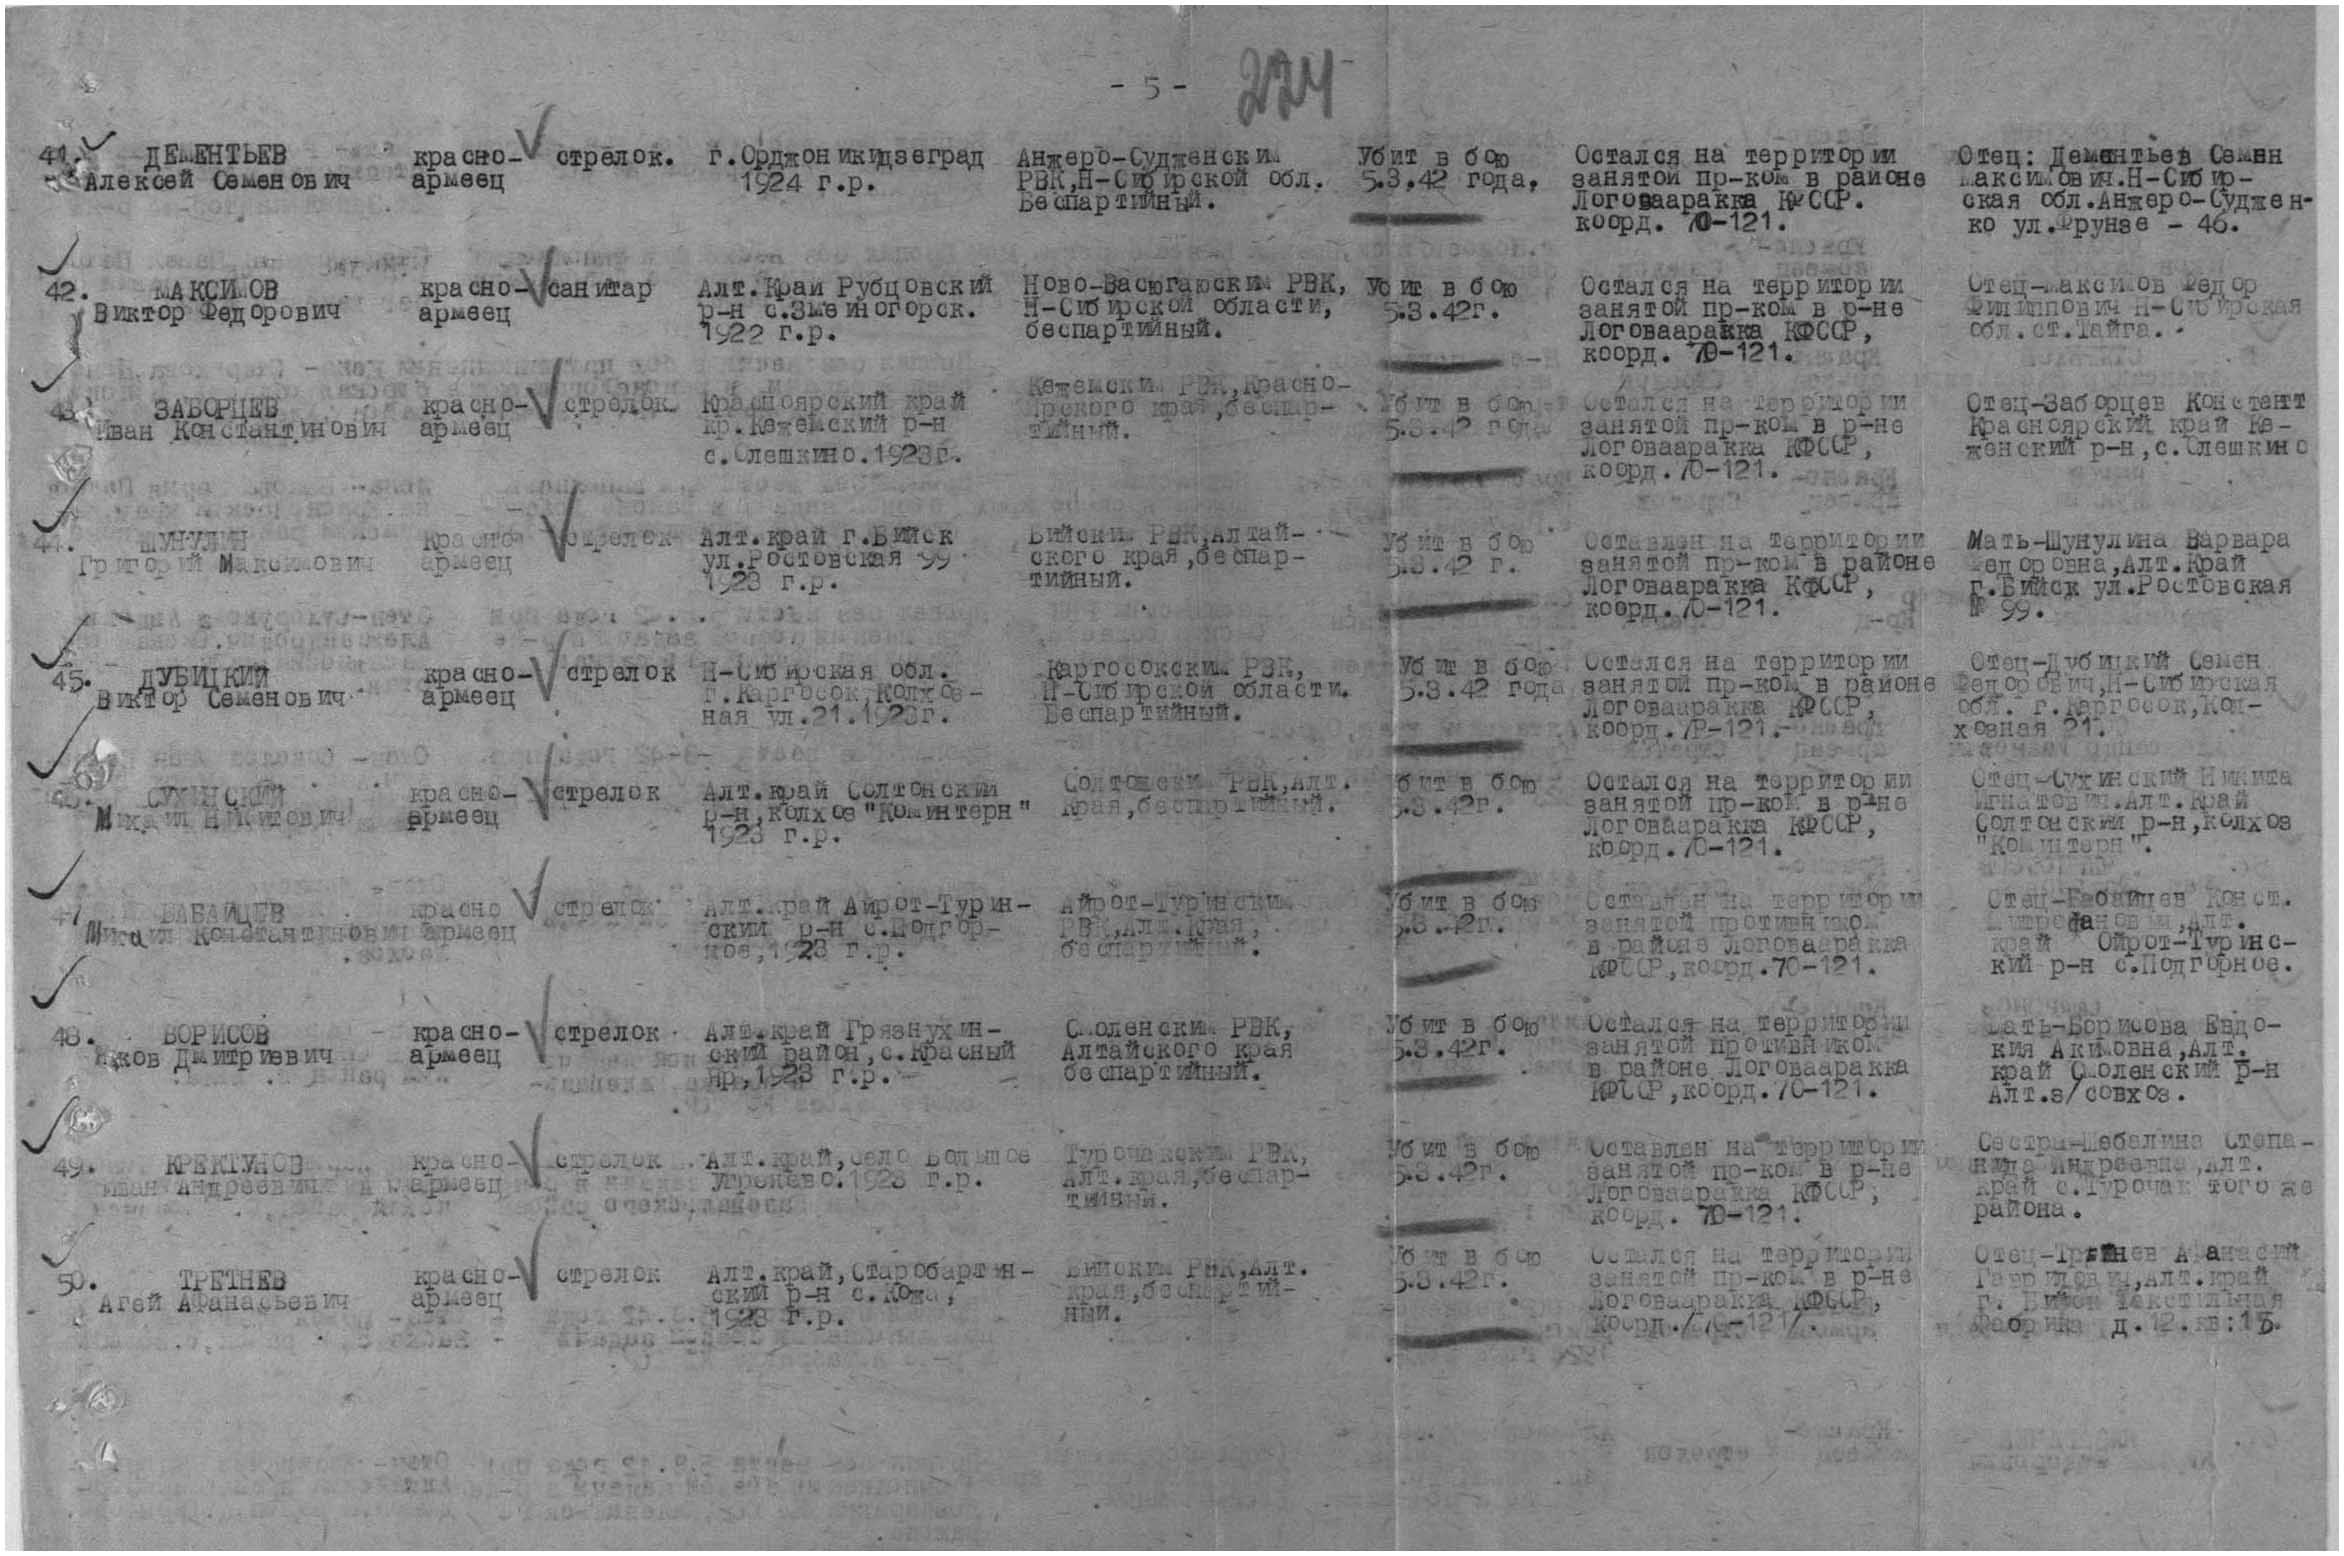 - 5 -
224
41. ДЕМЕНТЬЕВ красно- стрелок. г.Орджоникидзеград Анжеро-Судженским Убит в бою Остался на территории Отец: Дементьев Семен
Алексей Семенович армеец 1924 г.р. РВК,Н-Сибирской обл. 5.3.42 года. занятой пр-ком в районе Максимович.Н-Сибир-
Беспартийный. Логовааракка КФССР. ская обл.Анжеро-Суджен-
коорд. 70-121. ко ул.Фрунзе - 46.
42. МАКСИМОВ красно- санитар Алт.Край Рубцовский Ново-Васюгаюским РВК, Убит в бою Остался на территории Отец-Максимов Федор
Виктор Федорович армеец р-н с.Змеиногорск. Н-Сибирской области, 5.3.42г. занятой пр-ком в р-не Филиппович Н-Сибирская
1922 г.р. беспартийный. Логовааракка КФССР, обл.ст.Тайга.
коорд. 70-121.
43. ЗАБОРЦЕВ красно- стрелок Красноярский край Кежемским РВК,Красно- Убит в бою Остался на территории Отец-Заборцев Констант
Иван Константинович армеец кр.Кежемский р-н ярского края,беспар- 5.3.42 года занятой пр-ком в р-не Красноярский край Ке-
с.Олешкино.1923г. тийный. Логовааракка КФССР, женский р-н,с.Олешкино
коорд.70-121.
44. ШУНУЛИН красно- стрелок Алт.край г.Бийск Бийским РВК,Алтай- Убит в бою Оставлен на территории Мать-Шунулина Варвара
Григорий Максимович армеец ул.Ростовская 99 ского края,беспар- 5.3.42 г. занятой пр-ком в районе Федоровна,Алт.Край
1923 г.р. тийный. Логовааракка КФССР, г.Бийск ул.Ростовская
коорд.70-121. № 99.
45. ДУБИЦКИЙ красно- стрелок Н-Сибирская обл. Каргосокским РВК, Убит в бою Остался на территории Отец-Дубицкий Семен
Виктор Семенович армеец г.Каргосок,Колхоз- Н-Сибирской области. 5.3.42 года занятой пр-ком в районе Федорович,Н-Сибирская
ная ул.21.1923г. Беспартийный. Логовааракка КФССР, обл. г.Каргосок,Кол-
коорд.7Р-121. хозная 21.
46. СУХИНСКИЙ красно- стрелок Алт.край Солтонский Солтонским РВК,Алт. Убит в бою Остался на территории Отец-Сухинский Никита
Михаил Никитович армеец р-н,колхоз "Коминтерн" Края,беспартийный. 5.3.42г. занятой пр-ком в р-не Игнатович.Алт.Край
1923 г.р. Логовааракка КФССР, Солтонский р-н,колхоз
коорд.70-121. "Коминтерн".
47. БАБАЙЦЕВ красно стрелок Алт.край Айрот-Турин- Айрот-Туринским Убит в бою Оставлен на территории Отец-Бабайцев Конст.
Михаил Константинович армеец ский р-н с.Подгор- РВК,Алт.Края, 5.3.42г. занятой противником Митрофанович,Алт.
ное,1923 г.р. беспартийный. в районе Логовааракка край Ойрот-Туринс-
КФССР,коорд.70-121. кий р-н с.Подгорное.
48. БОРИСОВ красно- стрелок Алт.край Грязнухин- Смоленским РВК, Убит в бою Остался на территории Мать-Борисова Евдо-
Яков Дмитриевич армеец ский район,с.Красный Алтайского края 5.3.42г. занятой противником кия Акимовна,Алт.
Яр,1923 г.р. беспартийный. в районе Логовааракка край Смоленский р-н
КФССР,коорд.70-121. Алт.з/совхоз.
49. КРЕКТУНОВ красно- стрелок Алт.край,село Большое Турочакским РВК, Убит в бою Оставлен на территории Сестра-Шебалина Степа-
Иван Андреевич армеец Угренево.1923 г.р. Алт.края,беспар- 5.3.42г. занятой пр-ком в р-не нида Андреевна,Алт.
тийный. Логовааракка КФССР, край с.Турочак того же
коорд. 70-121. района.
50. ТРЕТНЕВ красно- стрелок Алт.край,Старобартин- Бийским РВК,Алт. Убит в бою Остался на территории Отец- Афанасий
Агей Афанасьевич армеец ский р-н с.Кожа, края,беспартий- 5.3.42г. занятой пр-ком в р-не Гаврилович,Алт.край
1923 г.р. ный. Логовааракка КФССР, г. Бийск Текстильная
коорд./70-121/. Фабрика д.12.кв:13.